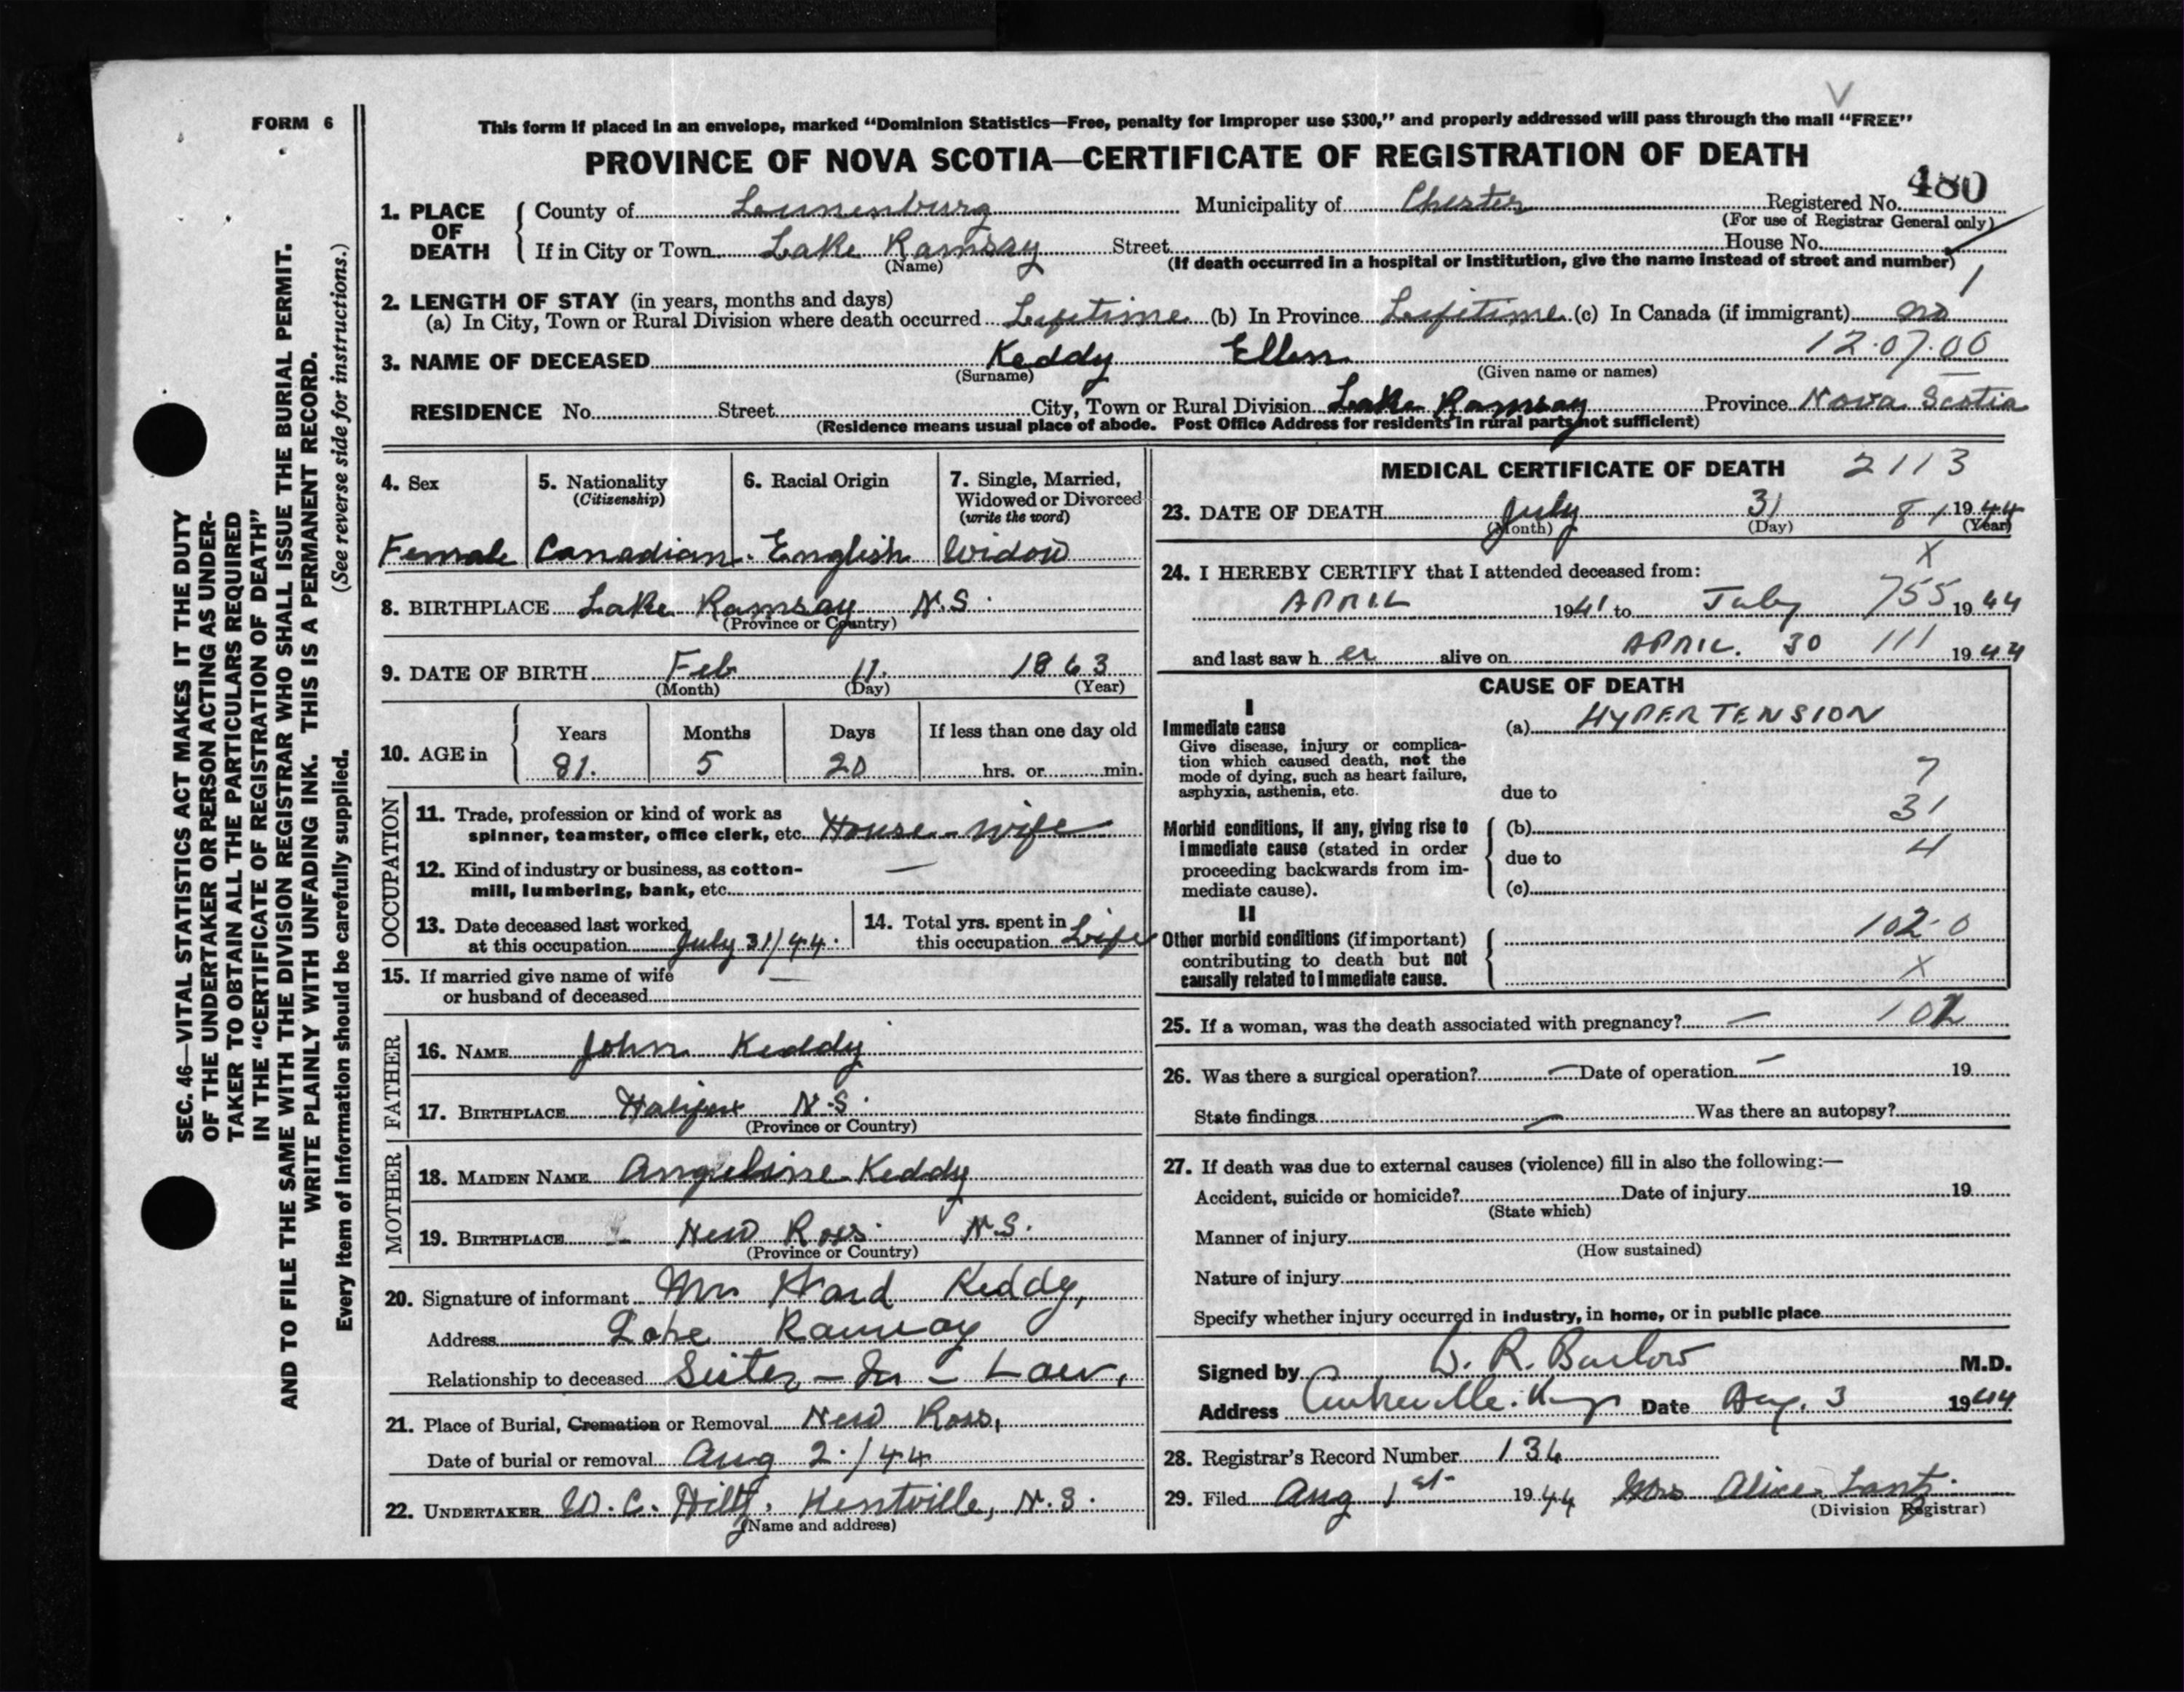 FORM 6
This form if placed in an envelope, marked "Dominion Statistics—Free, penalty for improper use $300," and properly addressed will pass through the mail "FREE"
PROVINCE OF NOVA SCOTIA—CERTIFICATE OF REGISTRATION OF DEATH
480
1. PLACE OF DEATH
County of Lunenburg Municipality of Chester Registered No.
(For use of Registrar General only)
If in City or Town Lake Ramsay Street House No.
(Name)
(If death occurred in a hospital or institution, give the name instead of street and number)
2. LENGTH OF STAY (in years, months and days)
(a) In City, Town or Rural Division where death occurred Lifetime (b) In Province Lifetime (c) In Canada (if immigrant) no
12.07.00
3. NAME OF DECEASED Keddy Ellen
(Surname) (Given name or names)
RESIDENCE No. Street City, Town or Rural Division Lake Ramsay Province Nova Scotia
(Residence means usual place of abode. Post Office Address for residents in rural parts not sufficient)
4. Sex
Female
5. Nationality
(Citizenship)
Canadian.
6. Racial Origin
English
7. Single, Married,
Widowed or Divorced
(write the word)
Widow
8. BIRTHPLACE Lake Ramsay N.S.
(Province or Country)
9. DATE OF BIRTH Feb 11. 1863
(Month) (Day) (Year)
10. AGE in
Years Months Days If less than one day old
81. 5 20 hrs. or min.
OCCUPATION
11. Trade, profession or kind of work as
spinner, teamster, office clerk, etc. House-wife
12. Kind of industry or business, as cotton-
mill, lumbering, bank, etc. —
13. Date deceased last worked
at this occupation July 31/44.
14. Total yrs. spent in
this occupation Life
15. If married give name of wife
or husband of deceased —
FATHER
16. NAME John Keddy
17. BIRTHPLACE Halifax N.S.
(Province or Country)
MOTHER
18. MAIDEN NAME Angeline Keddy
19. BIRTHPLACE New Ross. N.S.
(Province or Country)
20. Signature of informant Mrs Ward Keddy,
Address Lake Ramsay
Relationship to deceased Sister-In-Law,
21. Place of Burial, Cremation or Removal New Ross,
Date of burial or removal Aug 2./44
22. UNDERTAKER W. C. Kentville, N.S.
(Name and address)
MEDICAL CERTIFICATE OF DEATH 2113
23. DATE OF DEATH July 31 81 1944
(Month) (Day) (Year)
X
24. I HEREBY CERTIFY that I attended deceased from:
APRIL 1941 to July 755 1944
and last saw h er alive on APRIL. 30 111 1944
CAUSE OF DEATH
I
Immediate cause
Give disease, injury or complica-
tion which caused death, not the
mode of dying, such as heart failure,
asphyxia, asthenia, etc.
(a) HYPERTENSION
7
due to
31
Morbid conditions, if any, giving rise to
immediate cause (stated in order
proceeding backwards from im-
mediate cause).
(b)
4
due to
(c)
II
Other morbid conditions (if important)
contributing to death but not
causally related to immediate cause.
102-0
X
25. If a woman, was the death associated with pregnancy? — 102
26. Was there a surgical operation? — Date of operation — 19
State findings — Was there an autopsy?
27. If death was due to external causes (violence) fill in also the following:—
Accident, suicide or homicide? Date of injury 19
(State which)
Manner of injury
(How sustained)
Nature of injury
Specify whether injury occurred in industry, in home, or in public place
Signed by R. Barlow M.D.
Address Date Aug. 3 1944
28. Registrar's Record Number 136
29. Filed Aug 1st 1944 Mrs Alice Lantz.
(Division Registrar)
SEC. 46—VITAL STATISTICS ACT MAKES IT THE DUTY
OF THE UNDERTAKER OR PERSON ACTING AS UNDER-
TAKER TO OBTAIN ALL THE PARTICULARS REQUIRED
IN THE "CERTIFICATE OF REGISTRATION OF DEATH"
AND TO FILE THE SAME WITH THE DIVISION REGISTRAR WHO SHALL ISSUE THE BURIAL PERMIT.
WRITE PLAINLY WITH UNFADING INK. THIS IS A PERMANENT RECORD.
Every item of information should be carefully supplied. (See reverse side for instructions.)